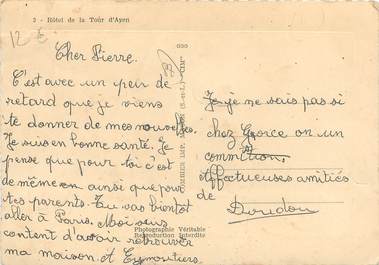 2 - Hôtel de la Tour d'Ayen
12 €
Cher Pierre.
C'est avec un peu de
retard que je viens
te donner de mes nouvelles.
Je suis en bonne santé. Je
pense que pour toi c'est
de même en ainsi que pour
tes parents. Tu vas bientôt
aller à Paris. Moi suis
content d'avoir retrouver
ma maison et Eymoutiers.
Je ne sais pas si
chez George on un
committion.
Affectueuses amitiés
de
Photographie Véritable
Reproduction Interdite